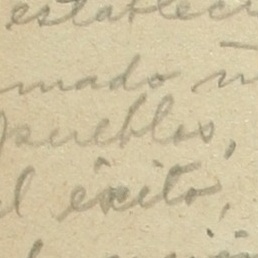 estableci
mado
pueblos,
el éxito,